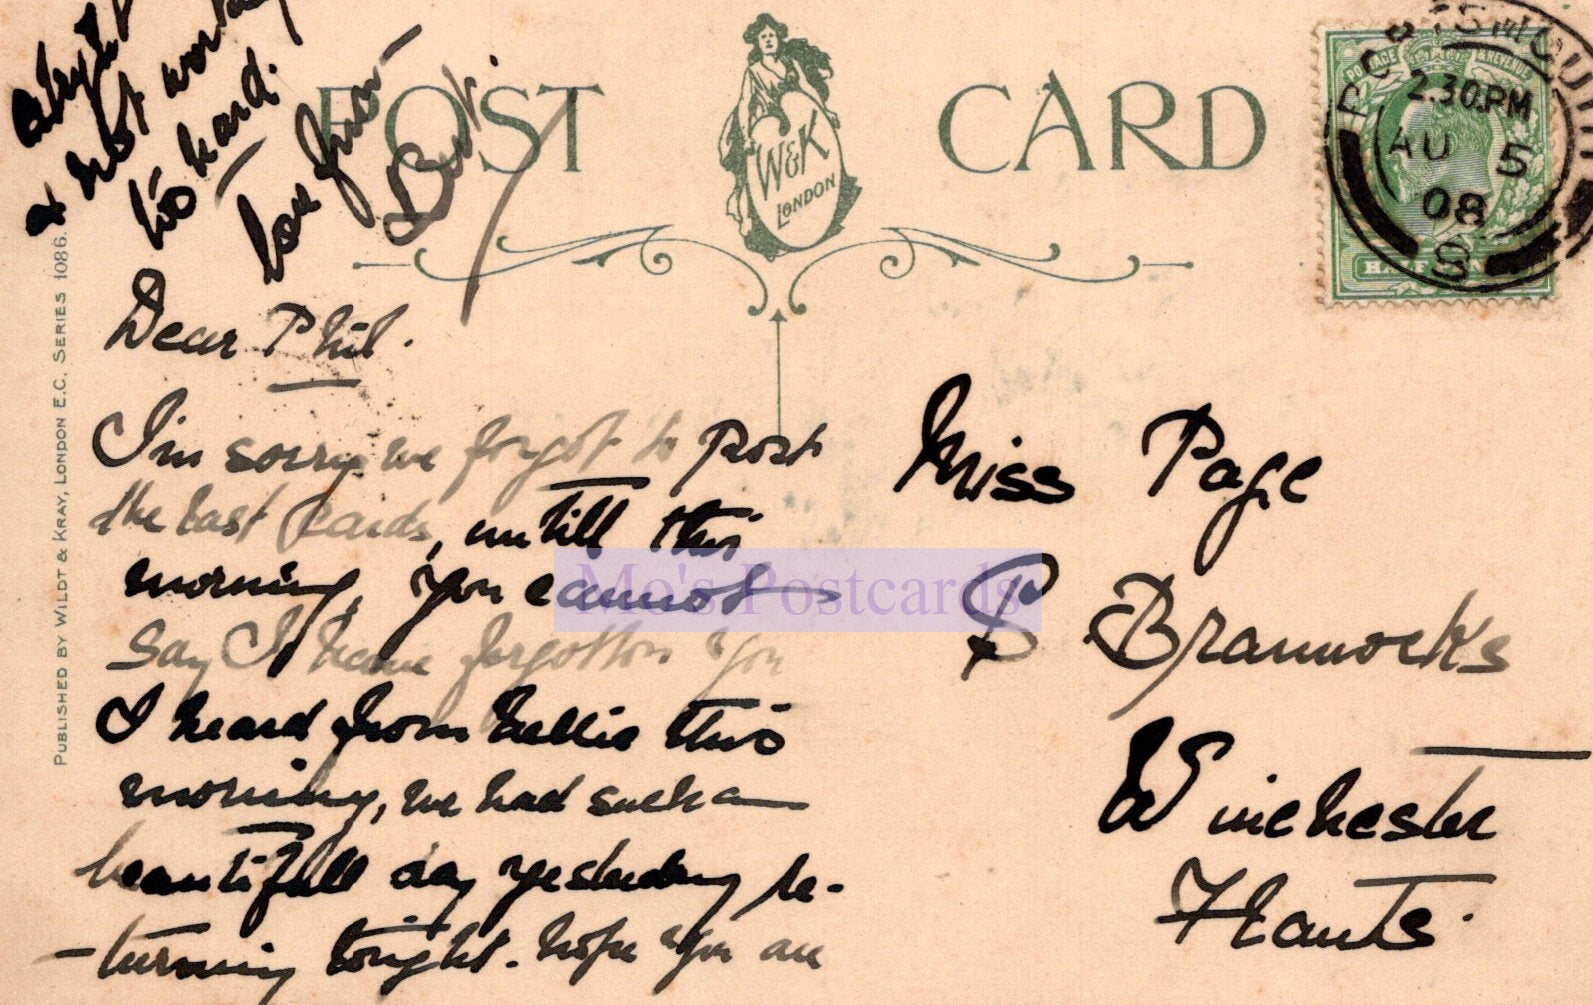 POST CARD
W&K
LONDON
POSTAGE & REVENUE
PORTSMOUTH
2.30.PM
AU 5
08
8
HALF PENNY
PUBLISHED BY WILDT & KRAY, LONDON E.C. SERIES 1086.
Dear Phil.
I'm sorry we forgot to post
the last cards, untill this
morning, you cannot
say I have forgotton you
I heard from Nellie this
morning, we had such a
beautifull day yesterday re-
-turning tonight. hope you are
alright
& not working
to hard.
love from
Bert.
Miss Page
S Brannocks
Winchester
Hants.
Mo's Postcards